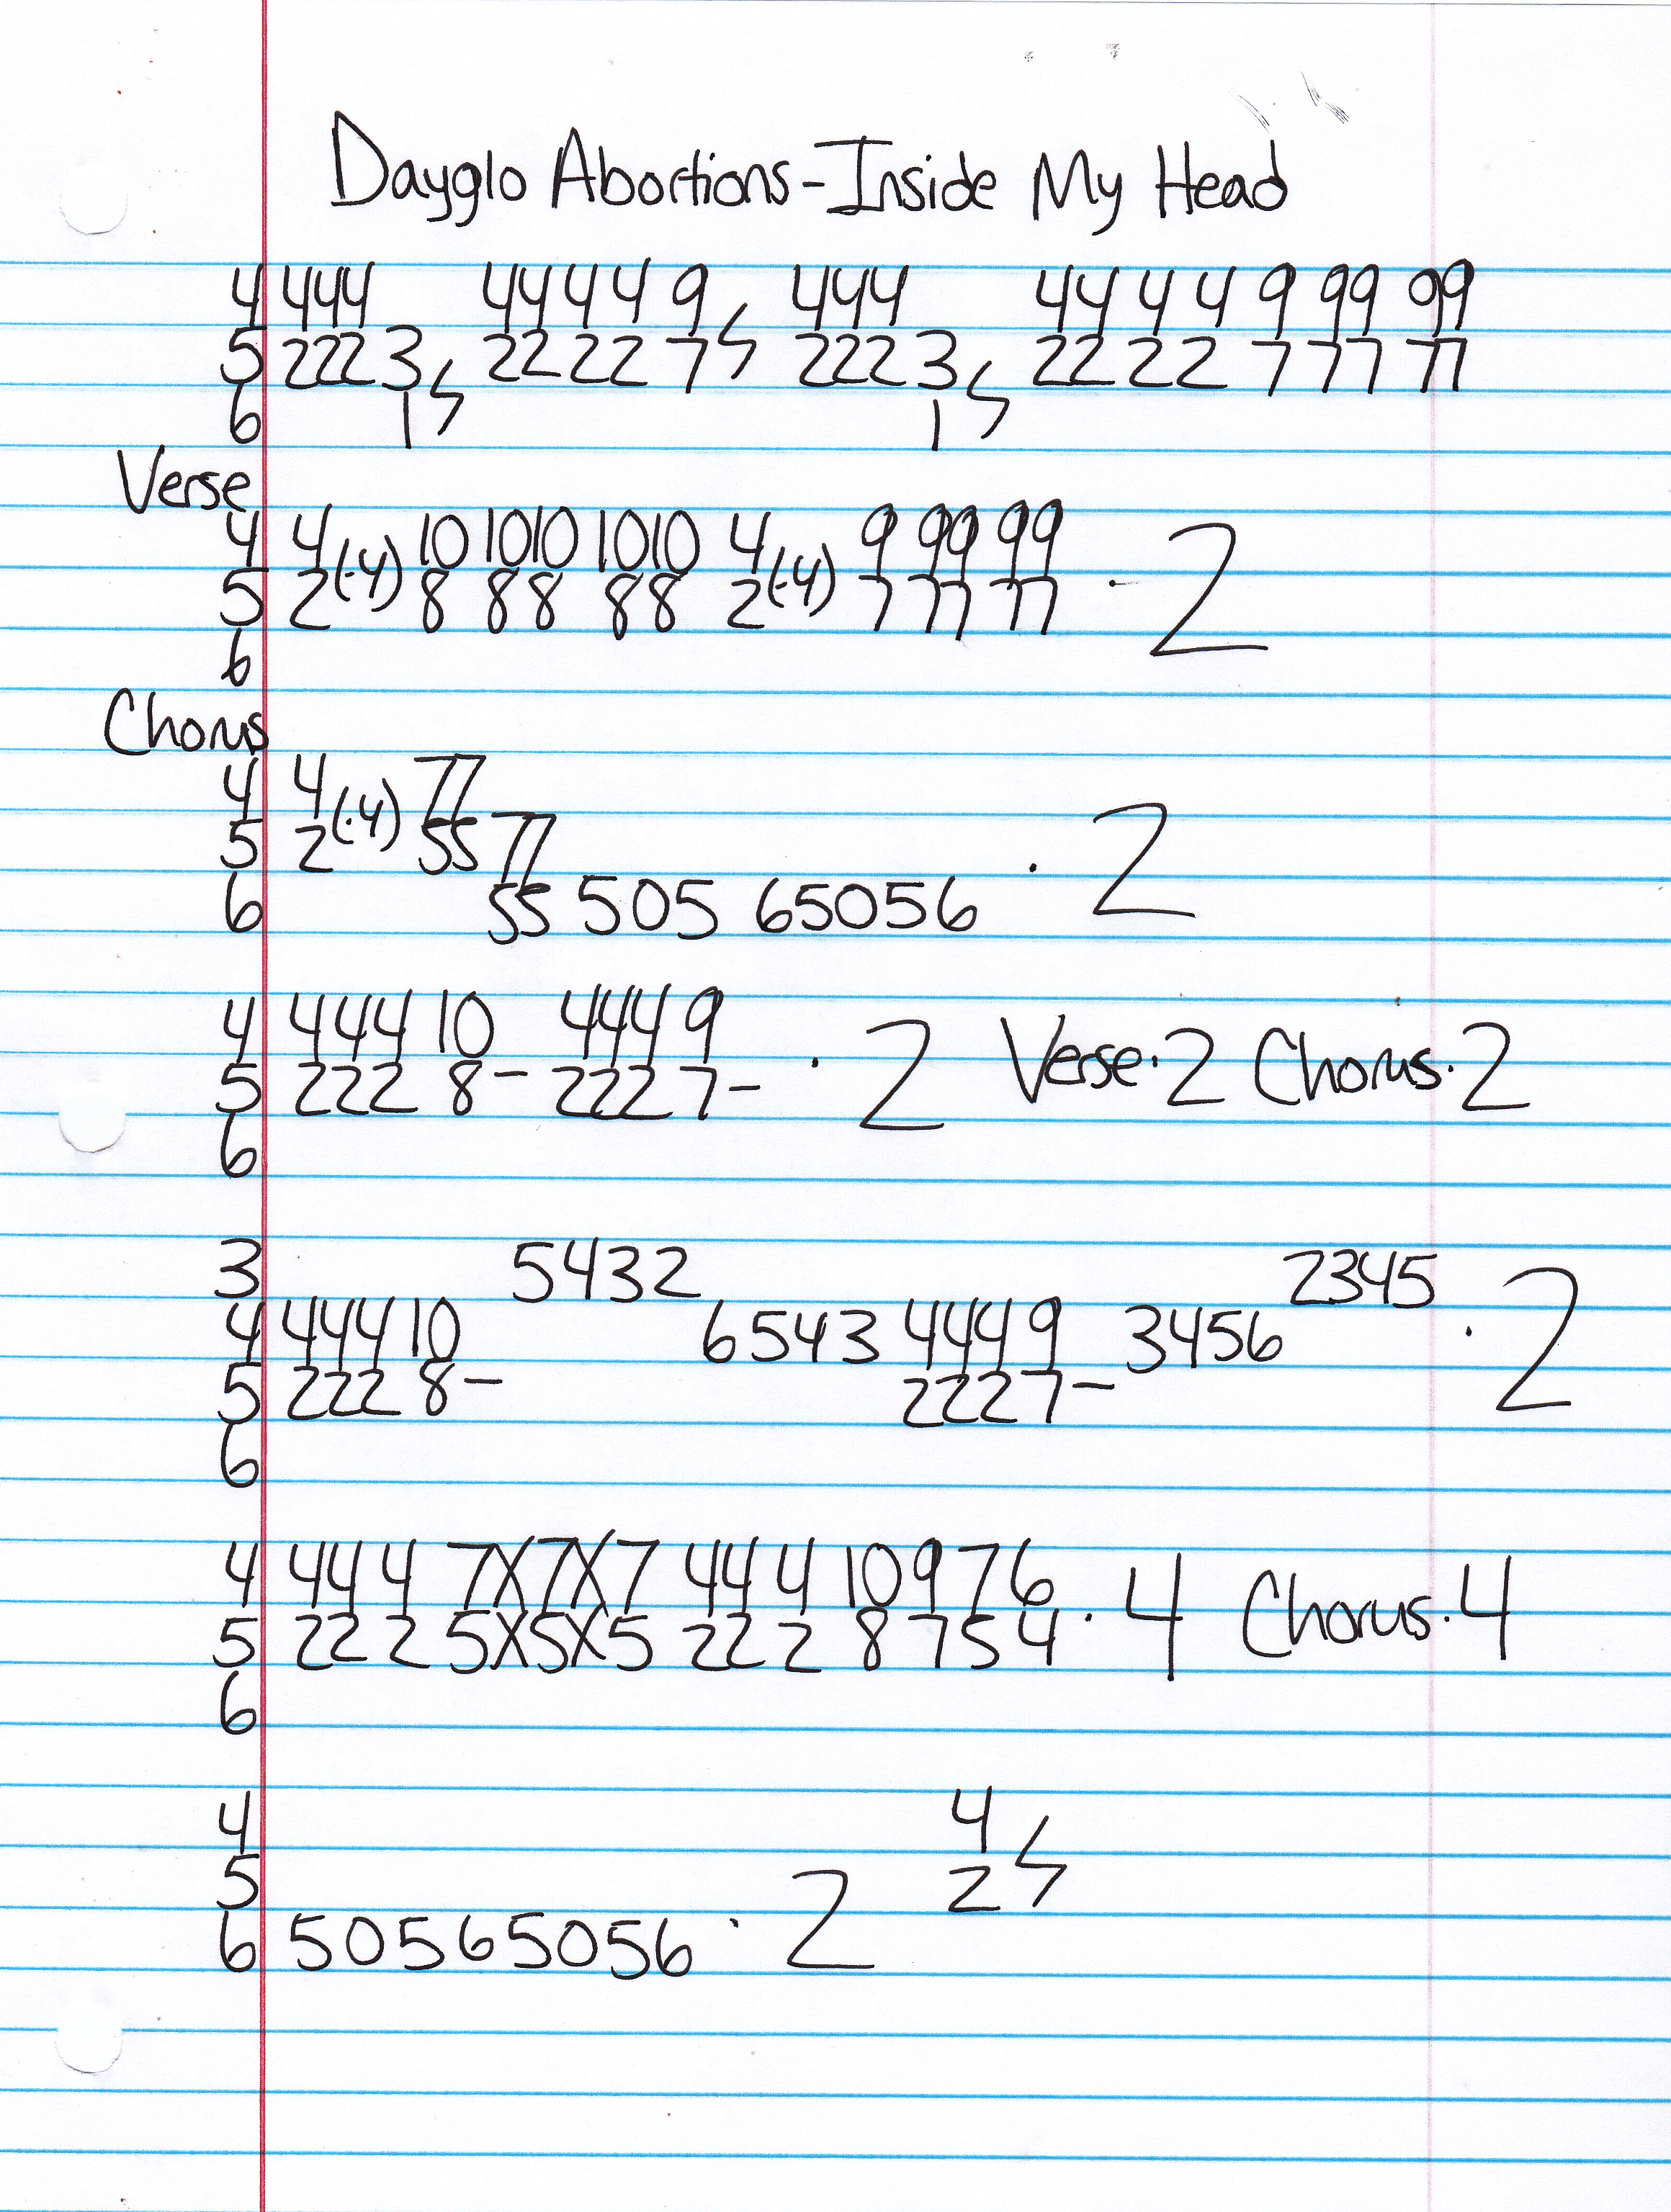 Dayglo Abortions-Inside My Head
4 444 4444 9 444 44 4 4 9 99 99
5 2223 22 22 7 2223 22 22 7 77 77
6 1 1
Verse
4 4 10 1010 1010 4 9 99 99
5 2(·4) 8 88 88 2(·4) 7 77 77 · 2
6
Chorus
4 4 77
5 2(·4) 55 77 · 2
6 55 505 65056
4 444 10 444 9
5 222 8- 222 7- · 2 Verse·2 Chorus·2
6
3 5432 2345
4 444 10 6543 444 9 3456 · 2
5 222 8- 222 7-
6
4 44 4 7X7X7 44 4 10 9 7 6
5 22 2 5X5X5 22 2 8 7 5 4 · 4 Chorus·4
6
4 4
5 2
6 50565056 · 2